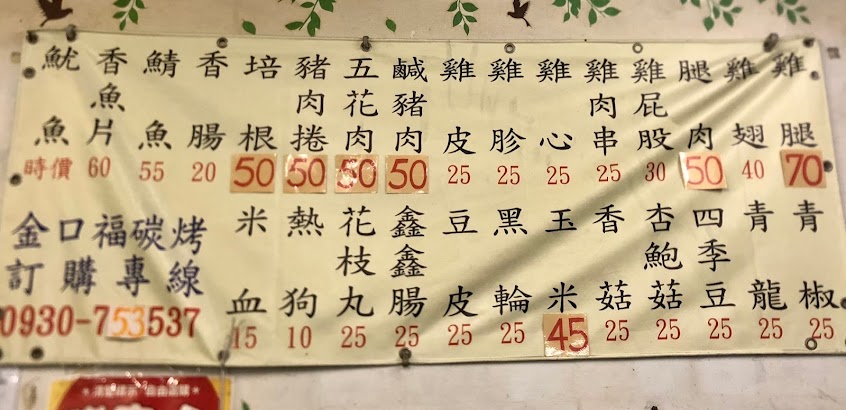 雞腿 70
雞翅 40
腿肉 50
雞屁股 30
雞肉串 25
雞心 25
雞胗 25
雞皮 25
鹹豬肉 50
五花肉 50
豬肉捲 50
培根 50
香腸 20
鯖魚 55
香魚片 60
魷魚 時價
青椒 25
青龍 25
四季豆 25
杏鮑菇 25
香菇 25
玉米 45
黑輪 25
豆皮 25
鑫鑫腸 25
花枝丸 25
熱狗 10
米血 15
金口福碳烤
訂購專線
0930-753537